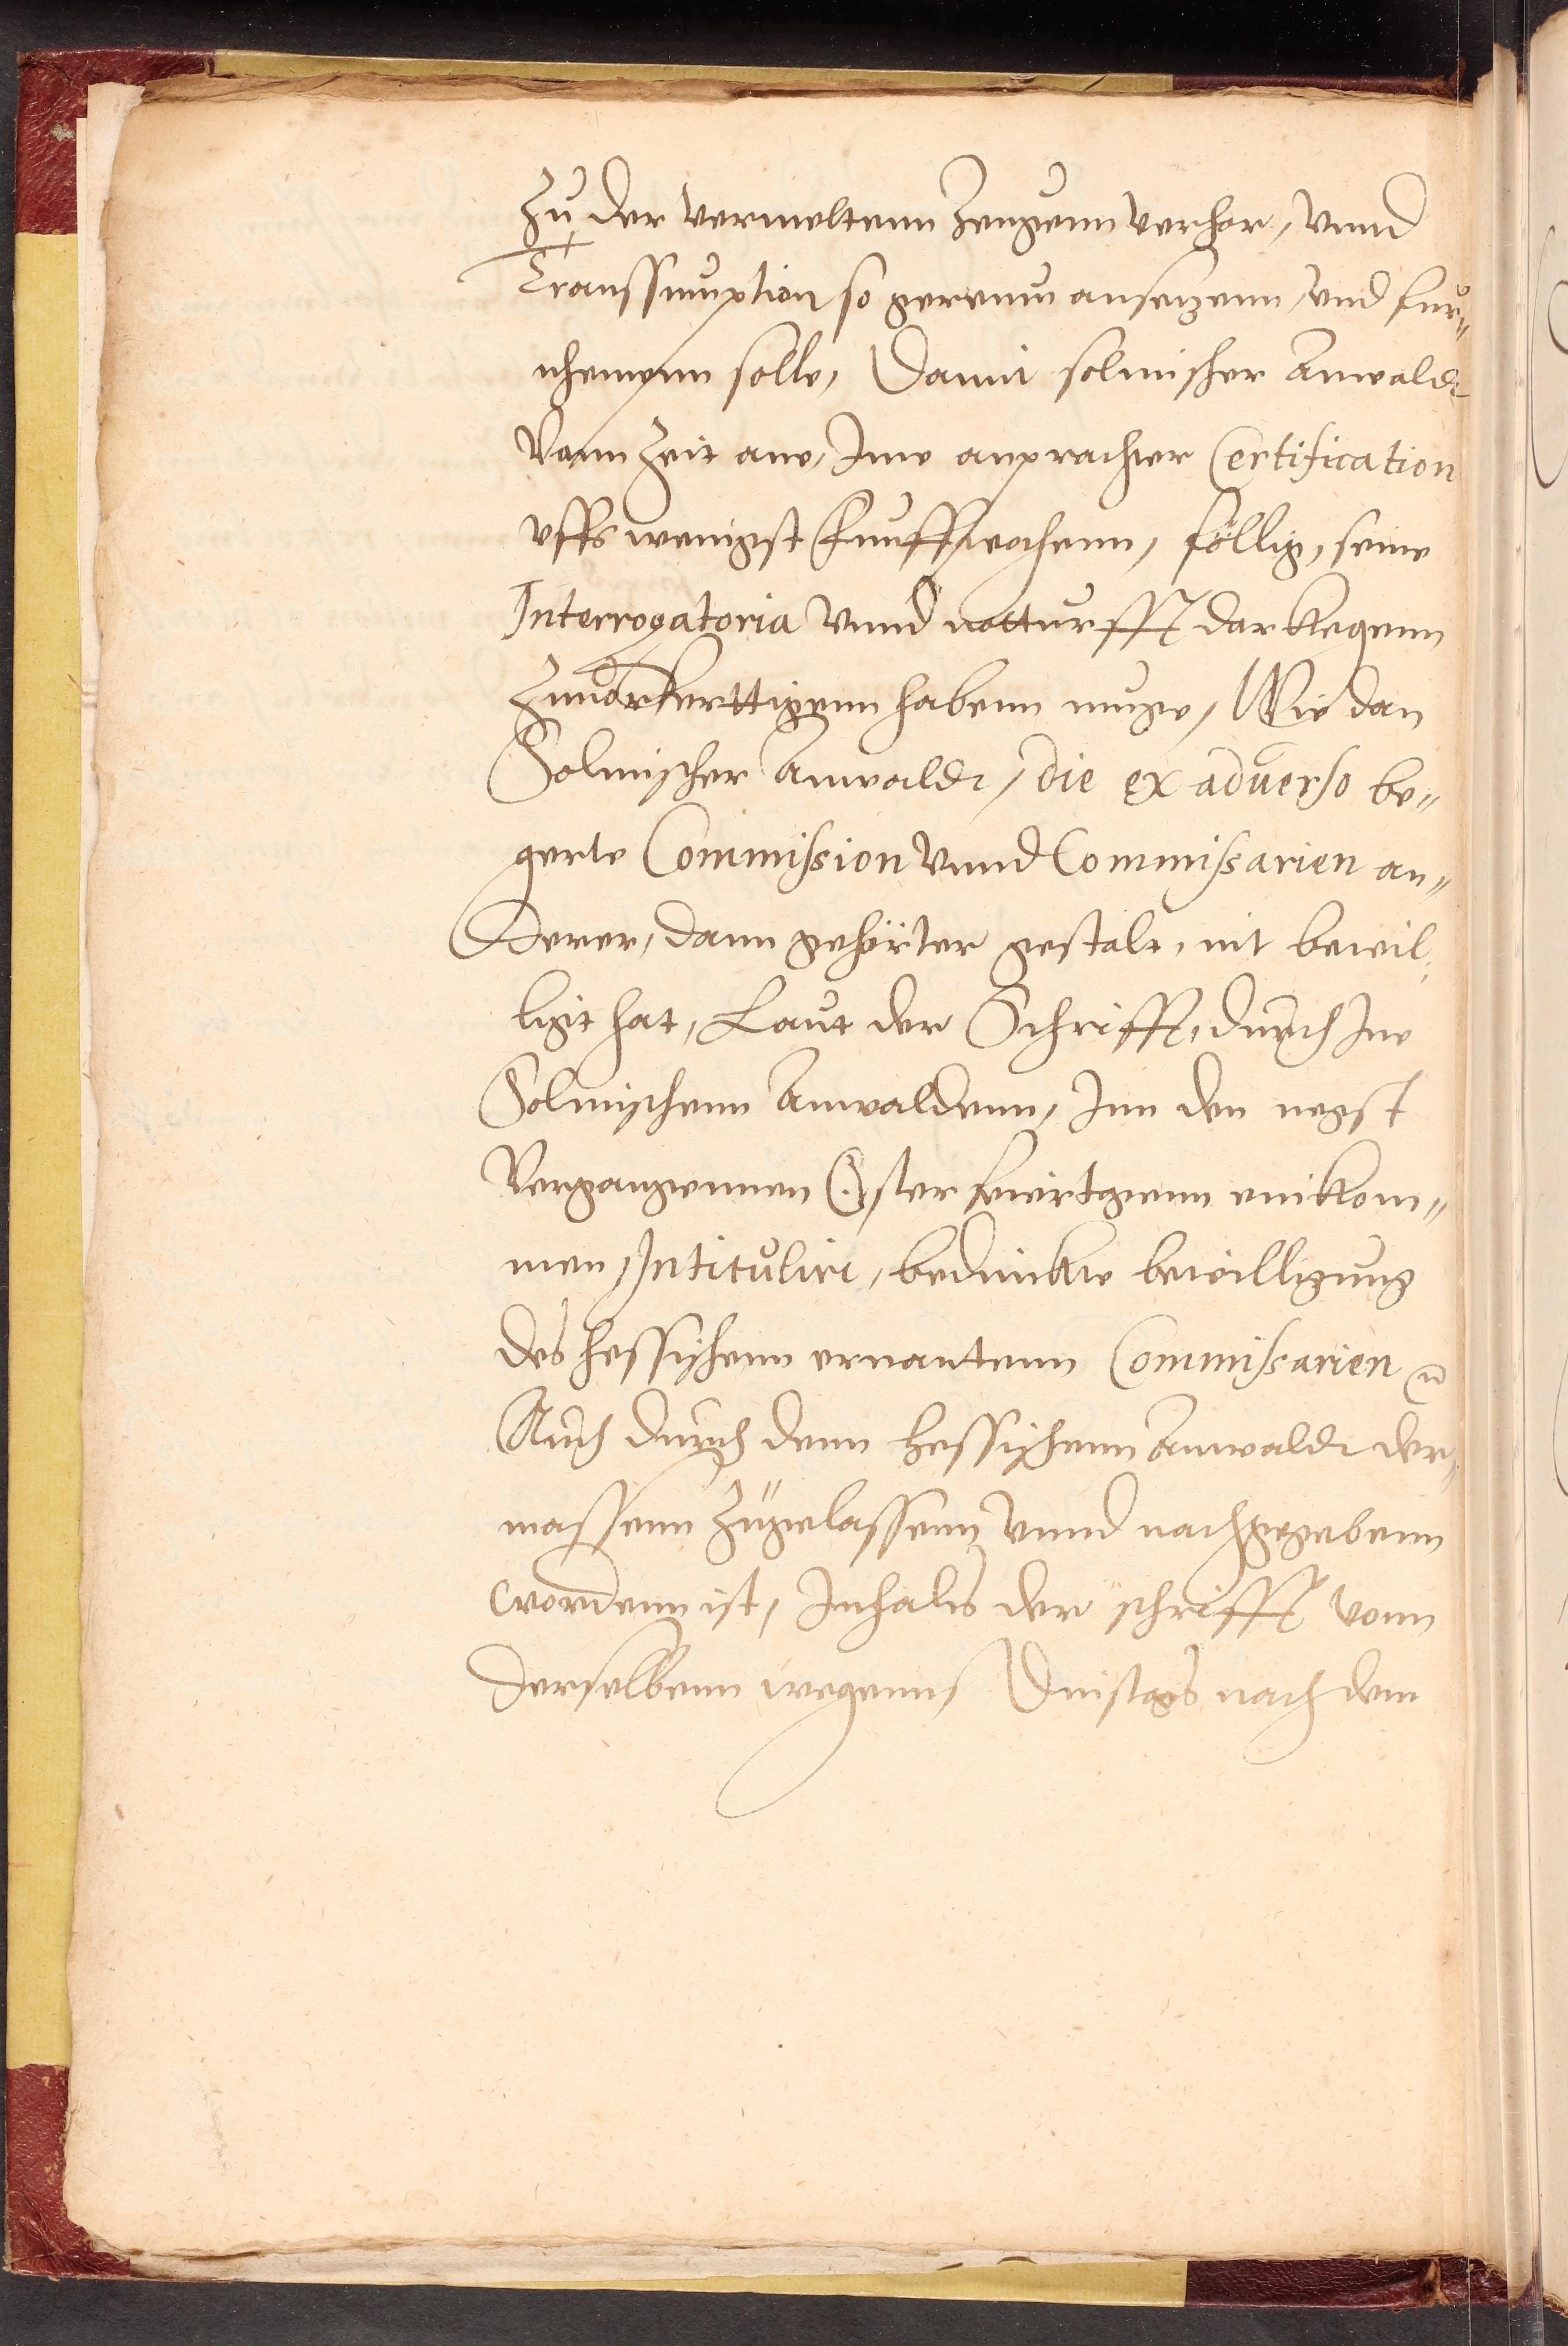 Zu der vermeltenn Zeugenn verhor, vnnd
Transsumption so gereum ansetzenn, vnd fur„
nhemenn solle, Damit solmischer Anwaldt
Vonn Zeit ane, Ime anprachter Certification
vffs wenigst funff wochenn, föllig, seine
Interrogatoria vnnd notturfft darkegenn
Zuuorfertttigenn habenn muge, Wie dan
Solmischer Anwaldt, die ex aduerso be„
gerte Commission vnnd Commissarien an„
derer, dann gehörter gestalt, nit bewil„
ligt hat, Laut der Schrifft, durch Ine
Solmischenn Anwaldenn, Inn den negst
Vergangennen Osterfeiertgenn einkom„
men, Intitulirt, bedinkte bewilligung
des hessischenn ernantenn Commissarien
Auch durch denn Hessischenn Anwaldt der„
massenn Zugelassenn vnnd nachgegebenn
wordenn ist, Inhalts der schrifft vonn
derselbenn wegenn, Dinstags nach dem